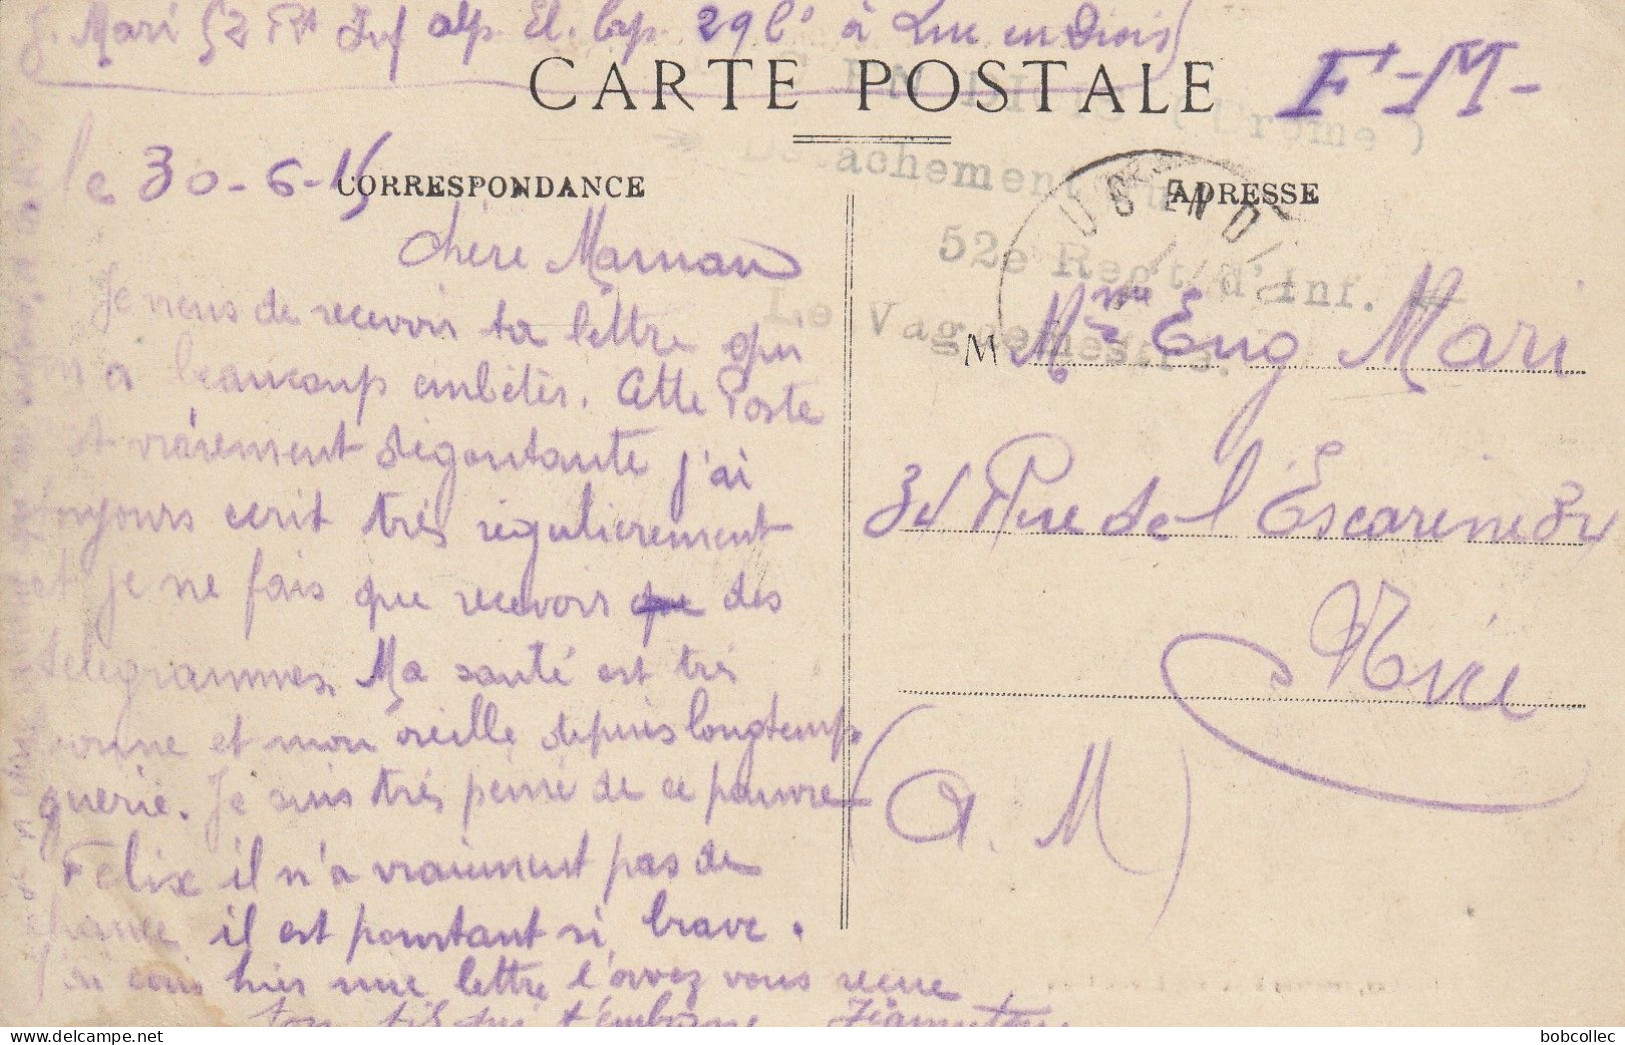 J. Mari 52 Rt Inf alp. El. Cap. 29 Cie à Luc en Diois
CARTE POSTALE
F-M-
(Drôme)
Détachement du
52e Regt d'Inf.
Le Vaguemestre.
LUC EN DI
le 30-6-15
CORRESPONDANCE
ADRESSE
chère Maman
Je viens de recevoir ta lettre qui
m'a beaucoup embêtés. Cette Poste
est vraiement dégoutante j'ai
toujours ecrit très régulierement
et je ne fais que recevoir que des
telegrammes. Ma santé est très
bonne et mon oreille depuis longtemps
guerie. Je suis très peiné de ce pauvre
Felix il n'a vraiement pas de
chance il est pourtant si brave.
J'ai hier une lettre l'avez vous recue
ton fils qui t'embrasse
M Mme Eug Mari
Rue de l'Escarene
Nice
(A. M)
bobcollec